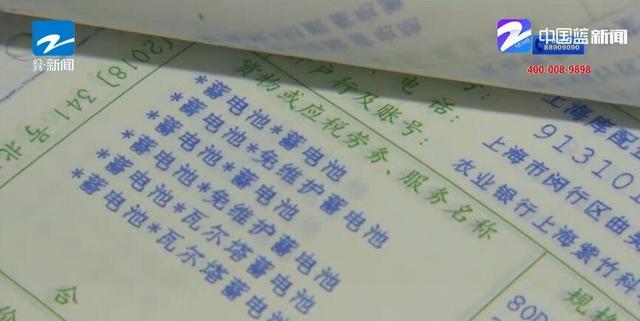 新闻
中国蓝新闻
NEWS
88909090
400-008-9898
(2018)341号北
电话:
户行及账号:
上海库配
91310
上海市闵行区曲
农业银行上海紫竹科
货物或应税劳务、服务名称
规格
*蓄电池*蓄电池
*蓄电池*免维护蓄电池
*蓄电池*蓄电池
*蓄电池*免维护蓄电池
*蓄电池*瓦尔塔蓄电池
*蓄电池*瓦尔塔蓄电池
80D
合
价